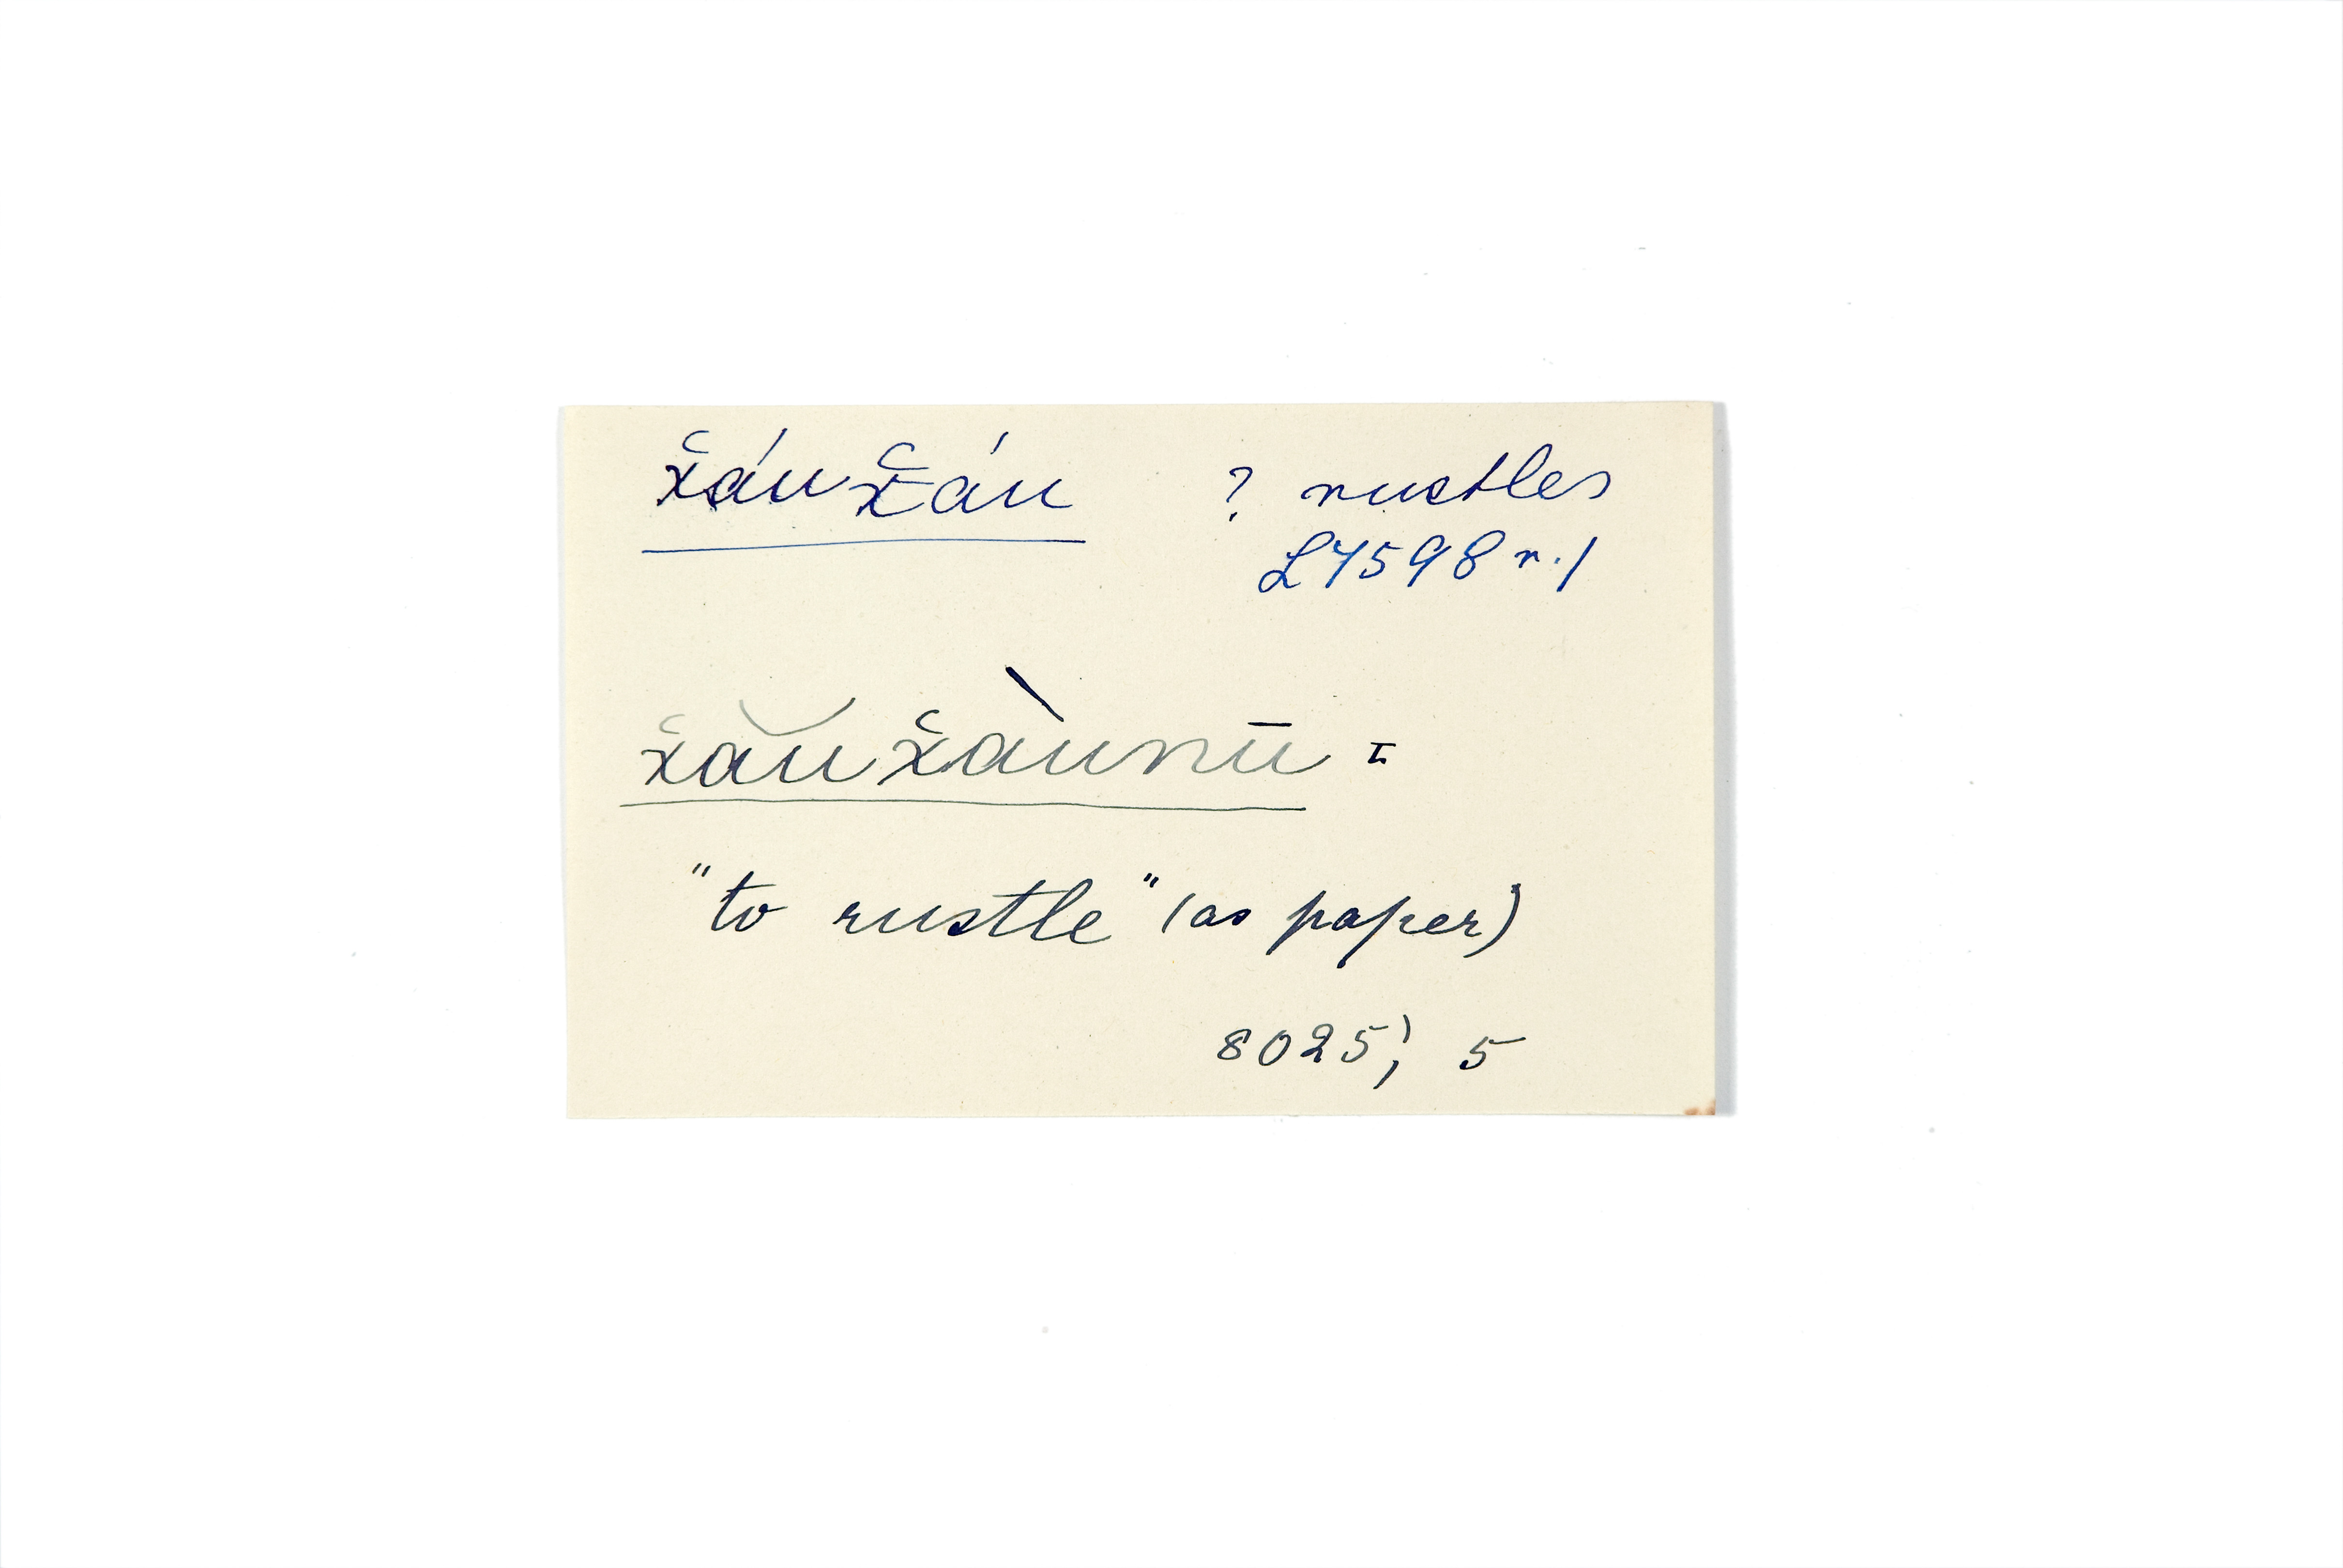 x̌áux̌áu ? rustles
L7598 r./
x̌ǎux̌àunū =
"to rustle" (as paper)
8025; 5